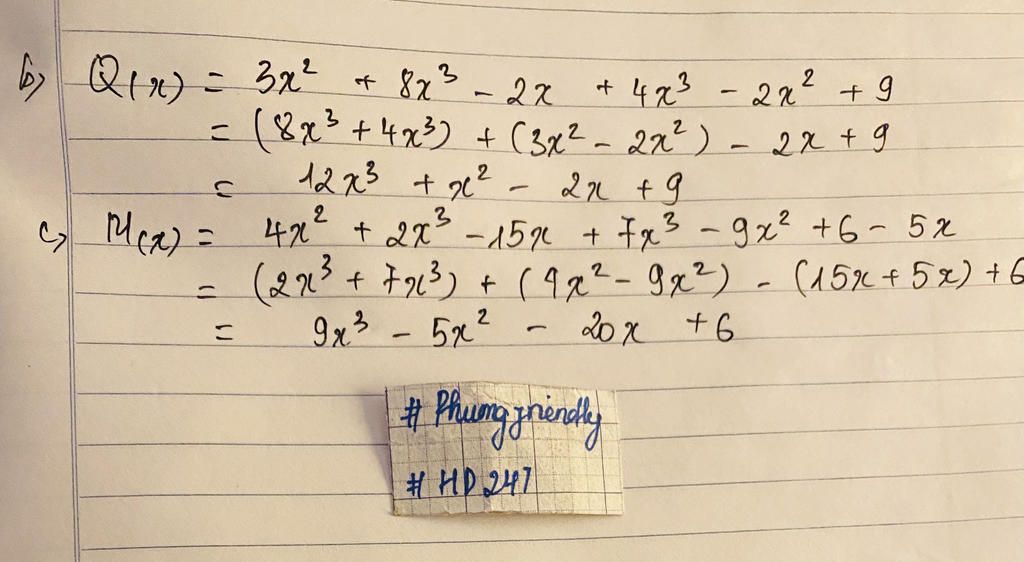 b) Q(x) = 3x² + 8x³ - 2x + 4x³ - 2x² + 9
= (8x³ + 4x³) + (3x² - 2x²) - 2x + 9
= 12x³ + x² - 2x + 9
c) M(x) = 4x² + 2x³ - 15x + 7x³ - 9x² + 6 - 5x
= (2x³ + 7x³) + (4x² - 9x²) - (15x + 5x) + 6
= 9x³ - 5x² - 20x + 6
# Phuongfriendly
# HD247